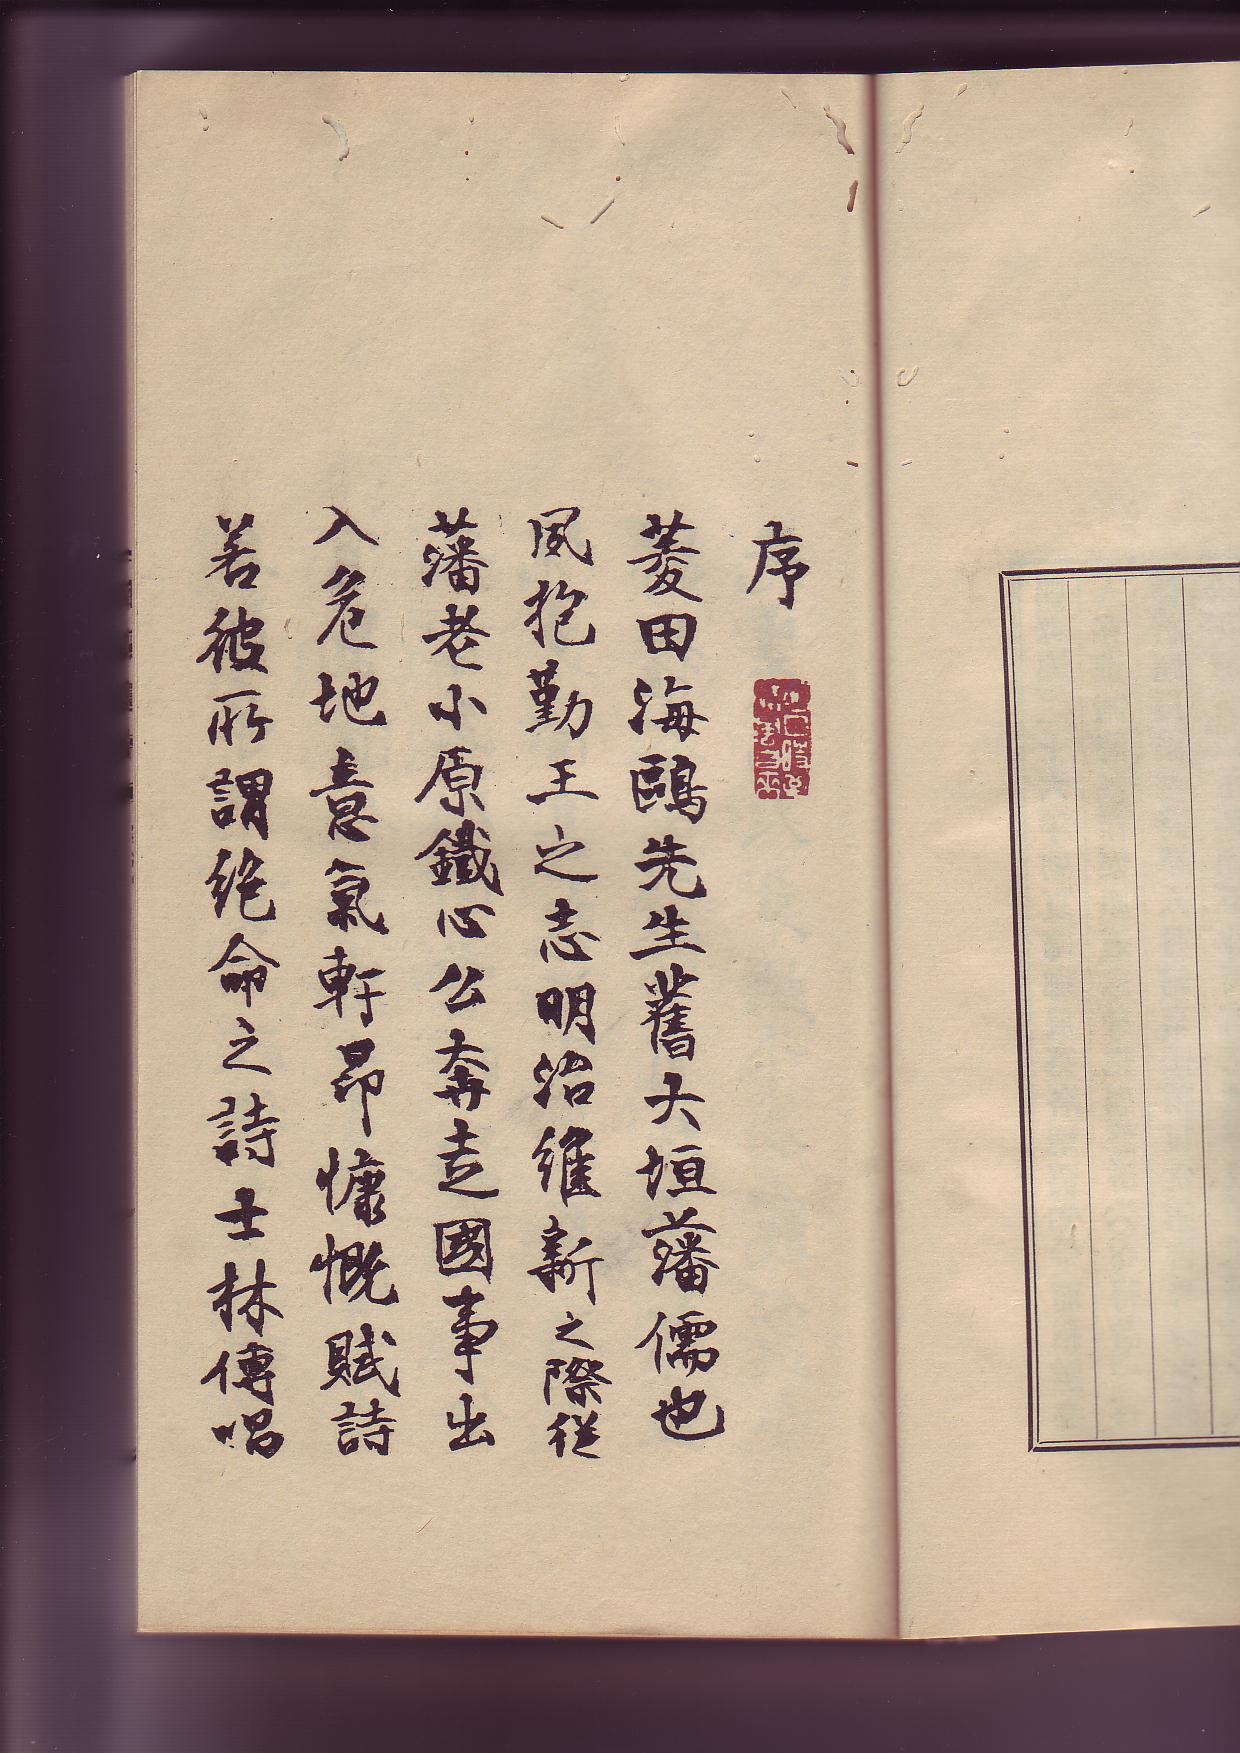 序
菱田海鷗先生舊大垣藩儒也
夙抱勤王之志明治維新之際従
藩老小原鐵心公奔走國事出
入危地意氣軒昂慷慨賦詩
若彼所謂絶命之詩士林傳唱